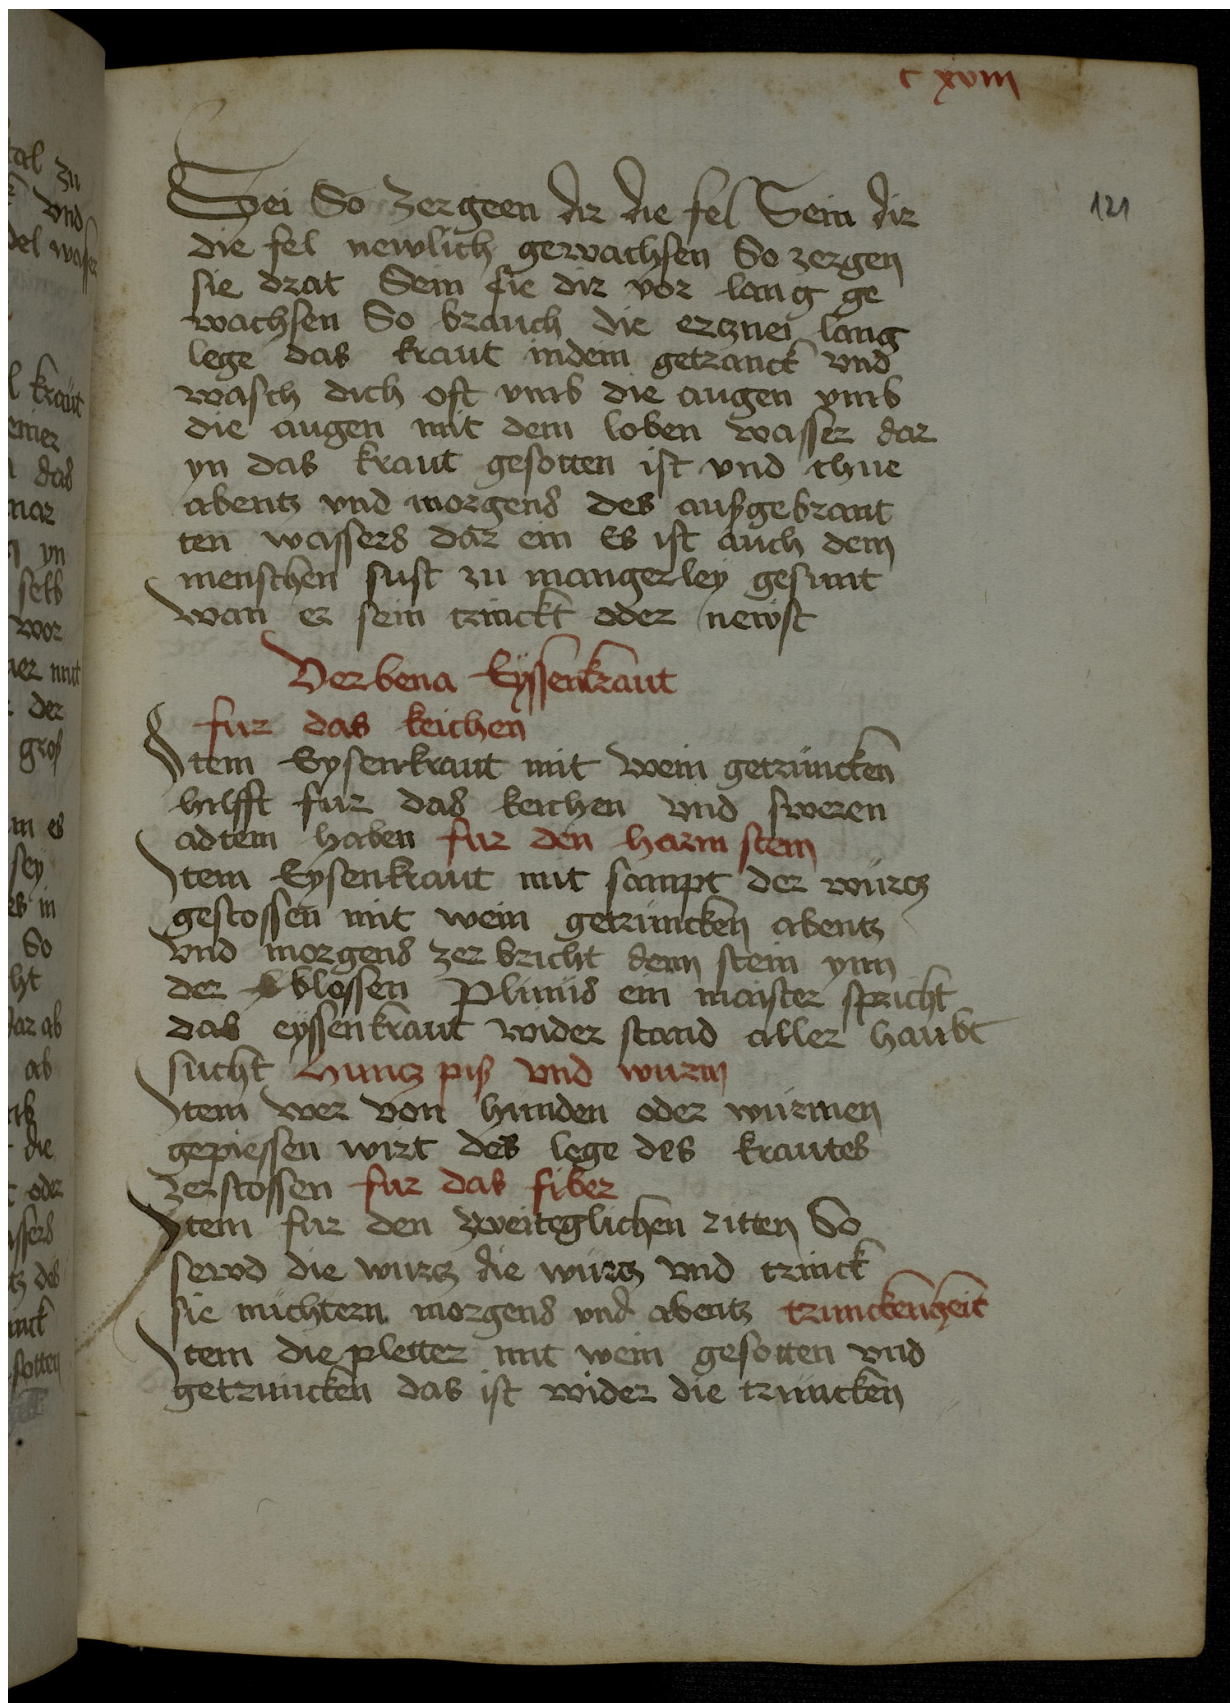 c xviii
121
Sei So zergeen dir die fel Sein dir
die fel newlich gewachsen So zergen
sie drat Sein sie dir vor lang ge
wachsen So brauch die ercznei lang
lege das kraut indem getranck vnd
wasch dich oft vmb die augen vmb
die augen mit dem loben wasser dar
yn das kraut gesotten ist vnd thue
abentz vnd morgens des außgebrant
ten wassers dar ein Es ist auch dem
menschen sust zu mangerley gesunt
wan er sein trinckt oder newst
Verbena Eyssenkraut
fur das keichen
Item Eysenkraut mit wein getruncken
hilfft fur das keichen vnd sweren
adtem haben fur den harm stein
Item Eysenkraut mit sampt der wurcz
gestossen mit wein getruncken abentz
vnd morgens zer bricht denn stein ynn
der blossen Plinius ein maister spricht
das eyssenkraut wider stand aller haubt
sucht Huntz piß vnd wurm
Item wer von hunden oder wurmen
gepiessen wirt des lege des krautes
zerstossen fur das fiber
Item fur den zweiteglichen ritten So
sewd die wurcz die wurcz vnd trinck
sie nuchtern morgens vnd abentz trunckenheit
Item die pletter mit wein gesotten vnd
getruncken das ist wider die truncken